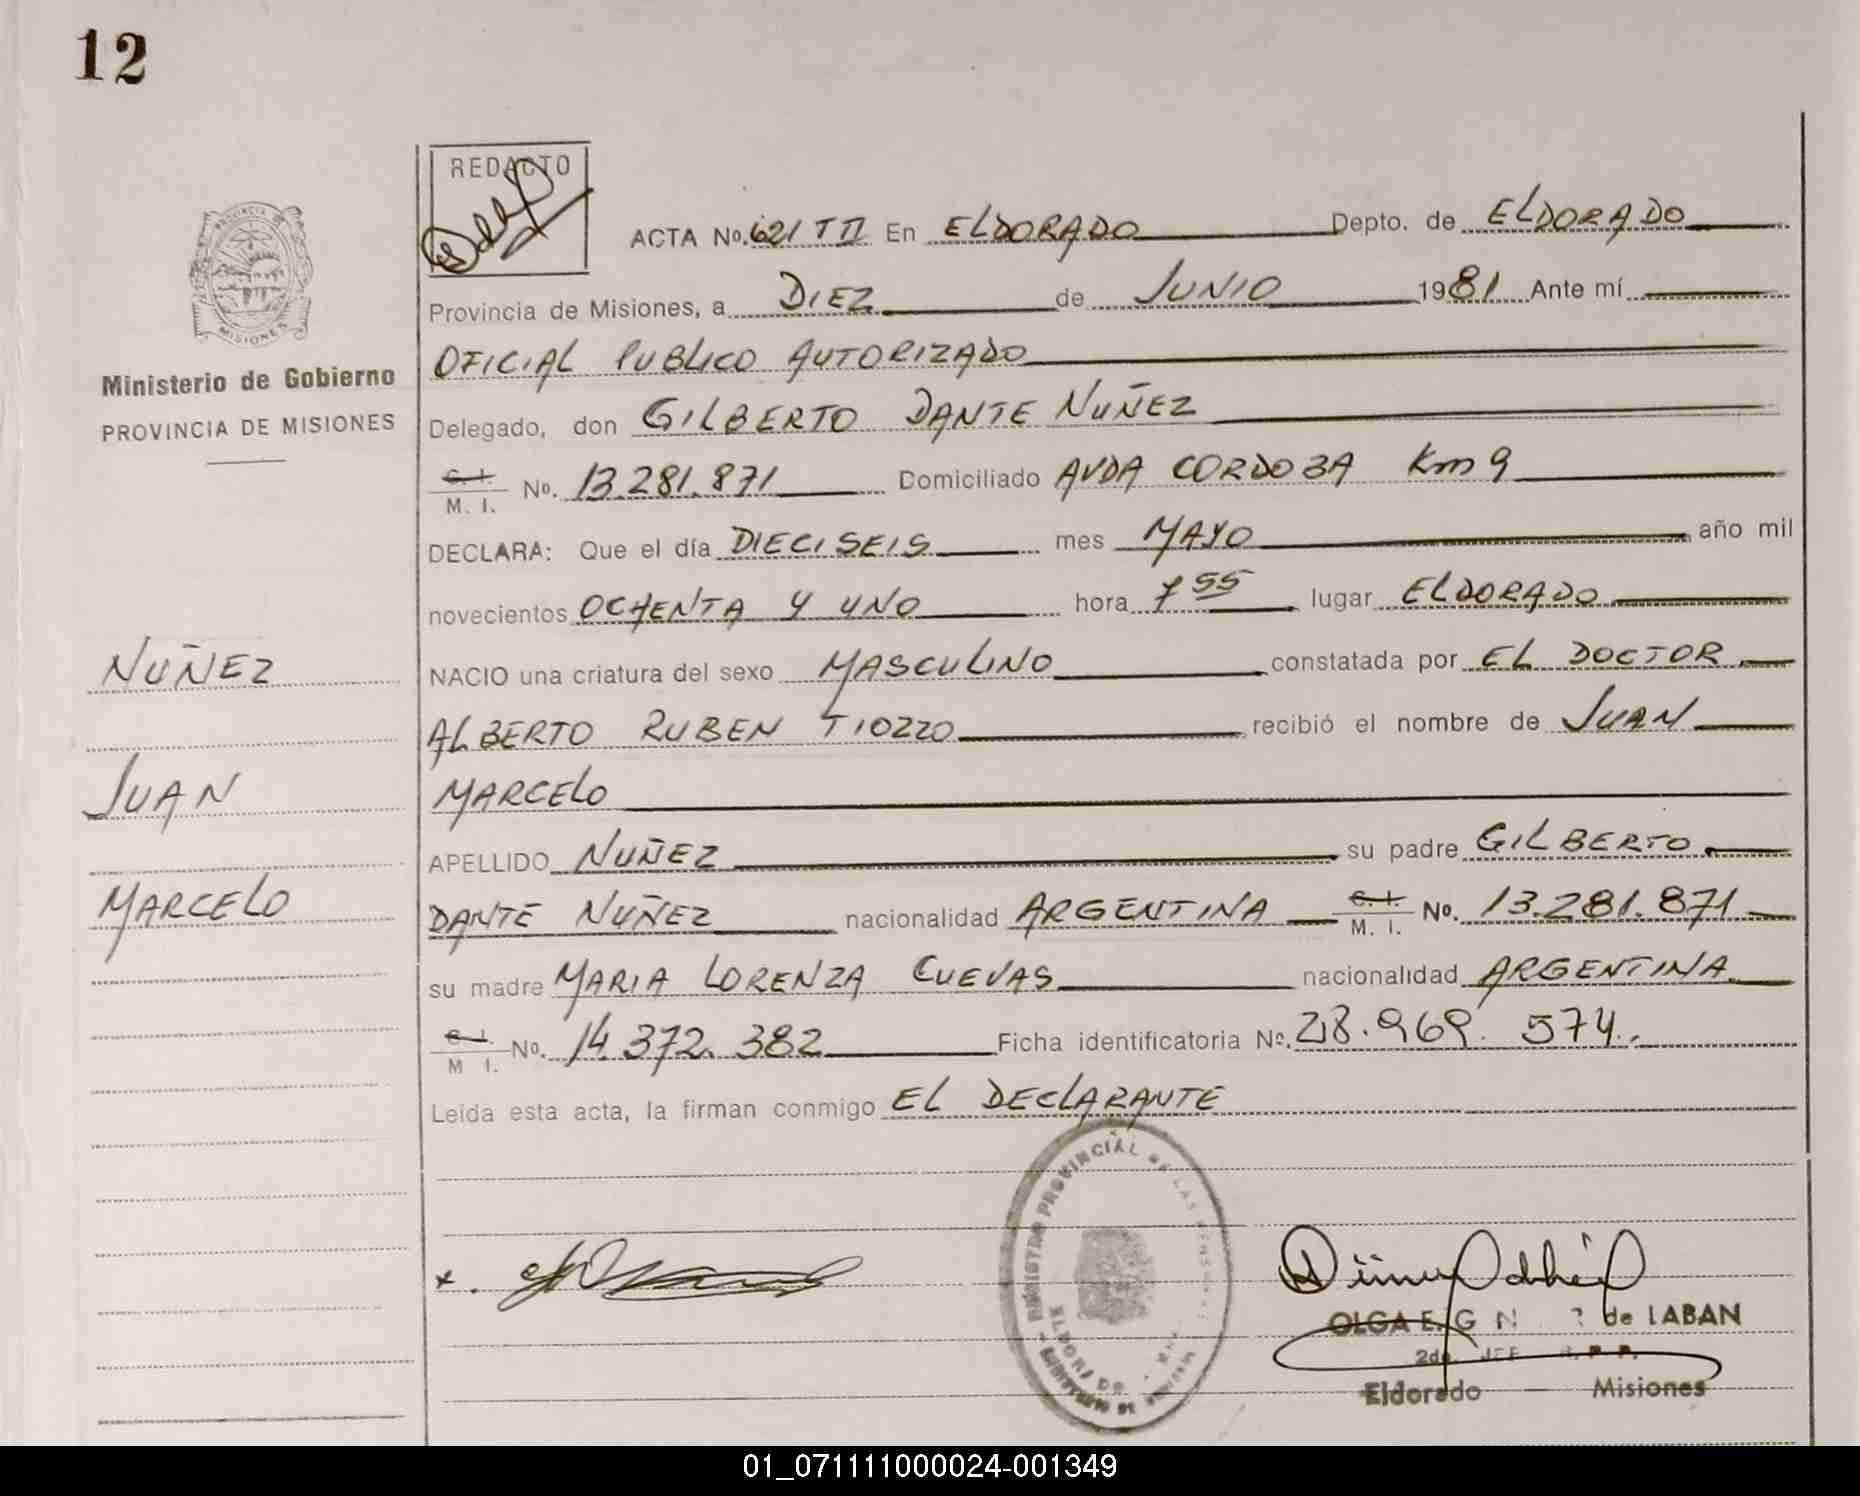 12
REDACTO
ACTA No. 621 T II En ELDORADO Depto. de ELDORADO
Provincia de Misiones, a DIEZ de JUNIO 1981 Ante mí
OFICIAL PUBLICO AUTORIZADO
Delegado, don GILBERTO DANTE NUÑEZ
C. I.
M. I. No. 13.281.871 Domiciliado AVDA CORDOBA Km 9
DECLARA: Que el día DIECISEIS mes MAYO año mil
novecientos OCHENTA Y UNO hora 7 55 lugar ELDORADO
NACIO una criatura del sexo MASCULINO constatada por EL DOCTOR
ALBERTO RUBEN TIOZZO recibió el nombre de JUAN
MARCELO
APELLIDO NUÑEZ su padre GILBERTO
DANTE NUÑEZ nacionalidad ARGENTINA C. I. M. I. No. 13.281.871
su madre MARIA LORENZA CUEVAS nacionalidad ARGENTINA
C. I.
M I. No. 14.372.382 Ficha identificatoria Nº. 28.969.574.
Leída esta acta, la firman conmigo EL DECLARANTE
PROVINCIA DE
MISIONES
Ministerio de Gobierno
PROVINCIA DE MISIONES
NUÑEZ
JUAN
MARCELO
x.
REGISTRO PROVINCIAL DE LAS PERSONAS
ELDORADO
OLGA E. G de LABAN
2do. JEF R. P. P.
Eldorado — Misiones
01_071111000024-001349